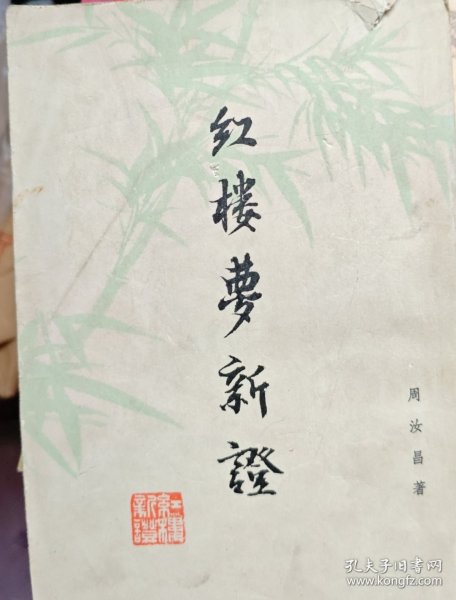 红楼梦新證
周汝昌著
孔夫子旧书网
www.kongfz.com